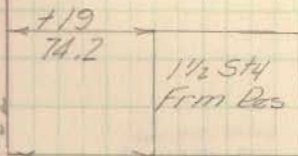 +19
74.2
1½ Sty
Frm Res